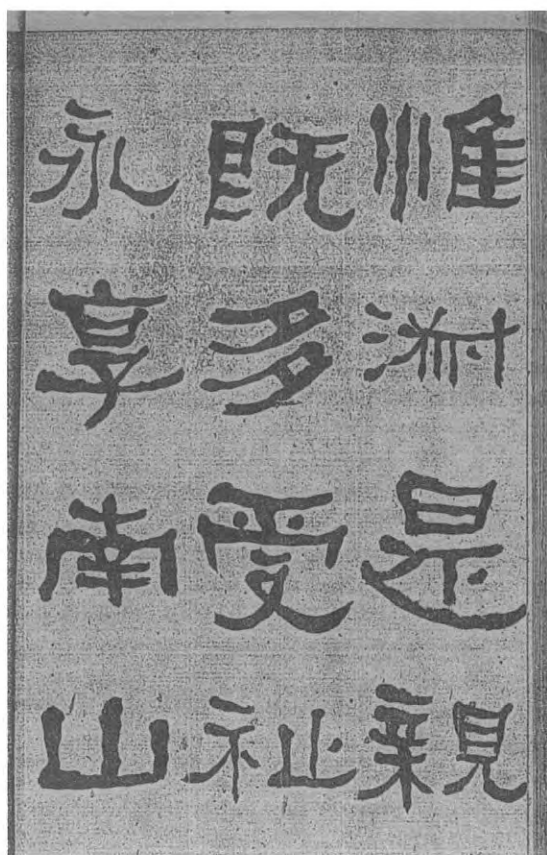 惟淑是親
既多受祉
永享南山